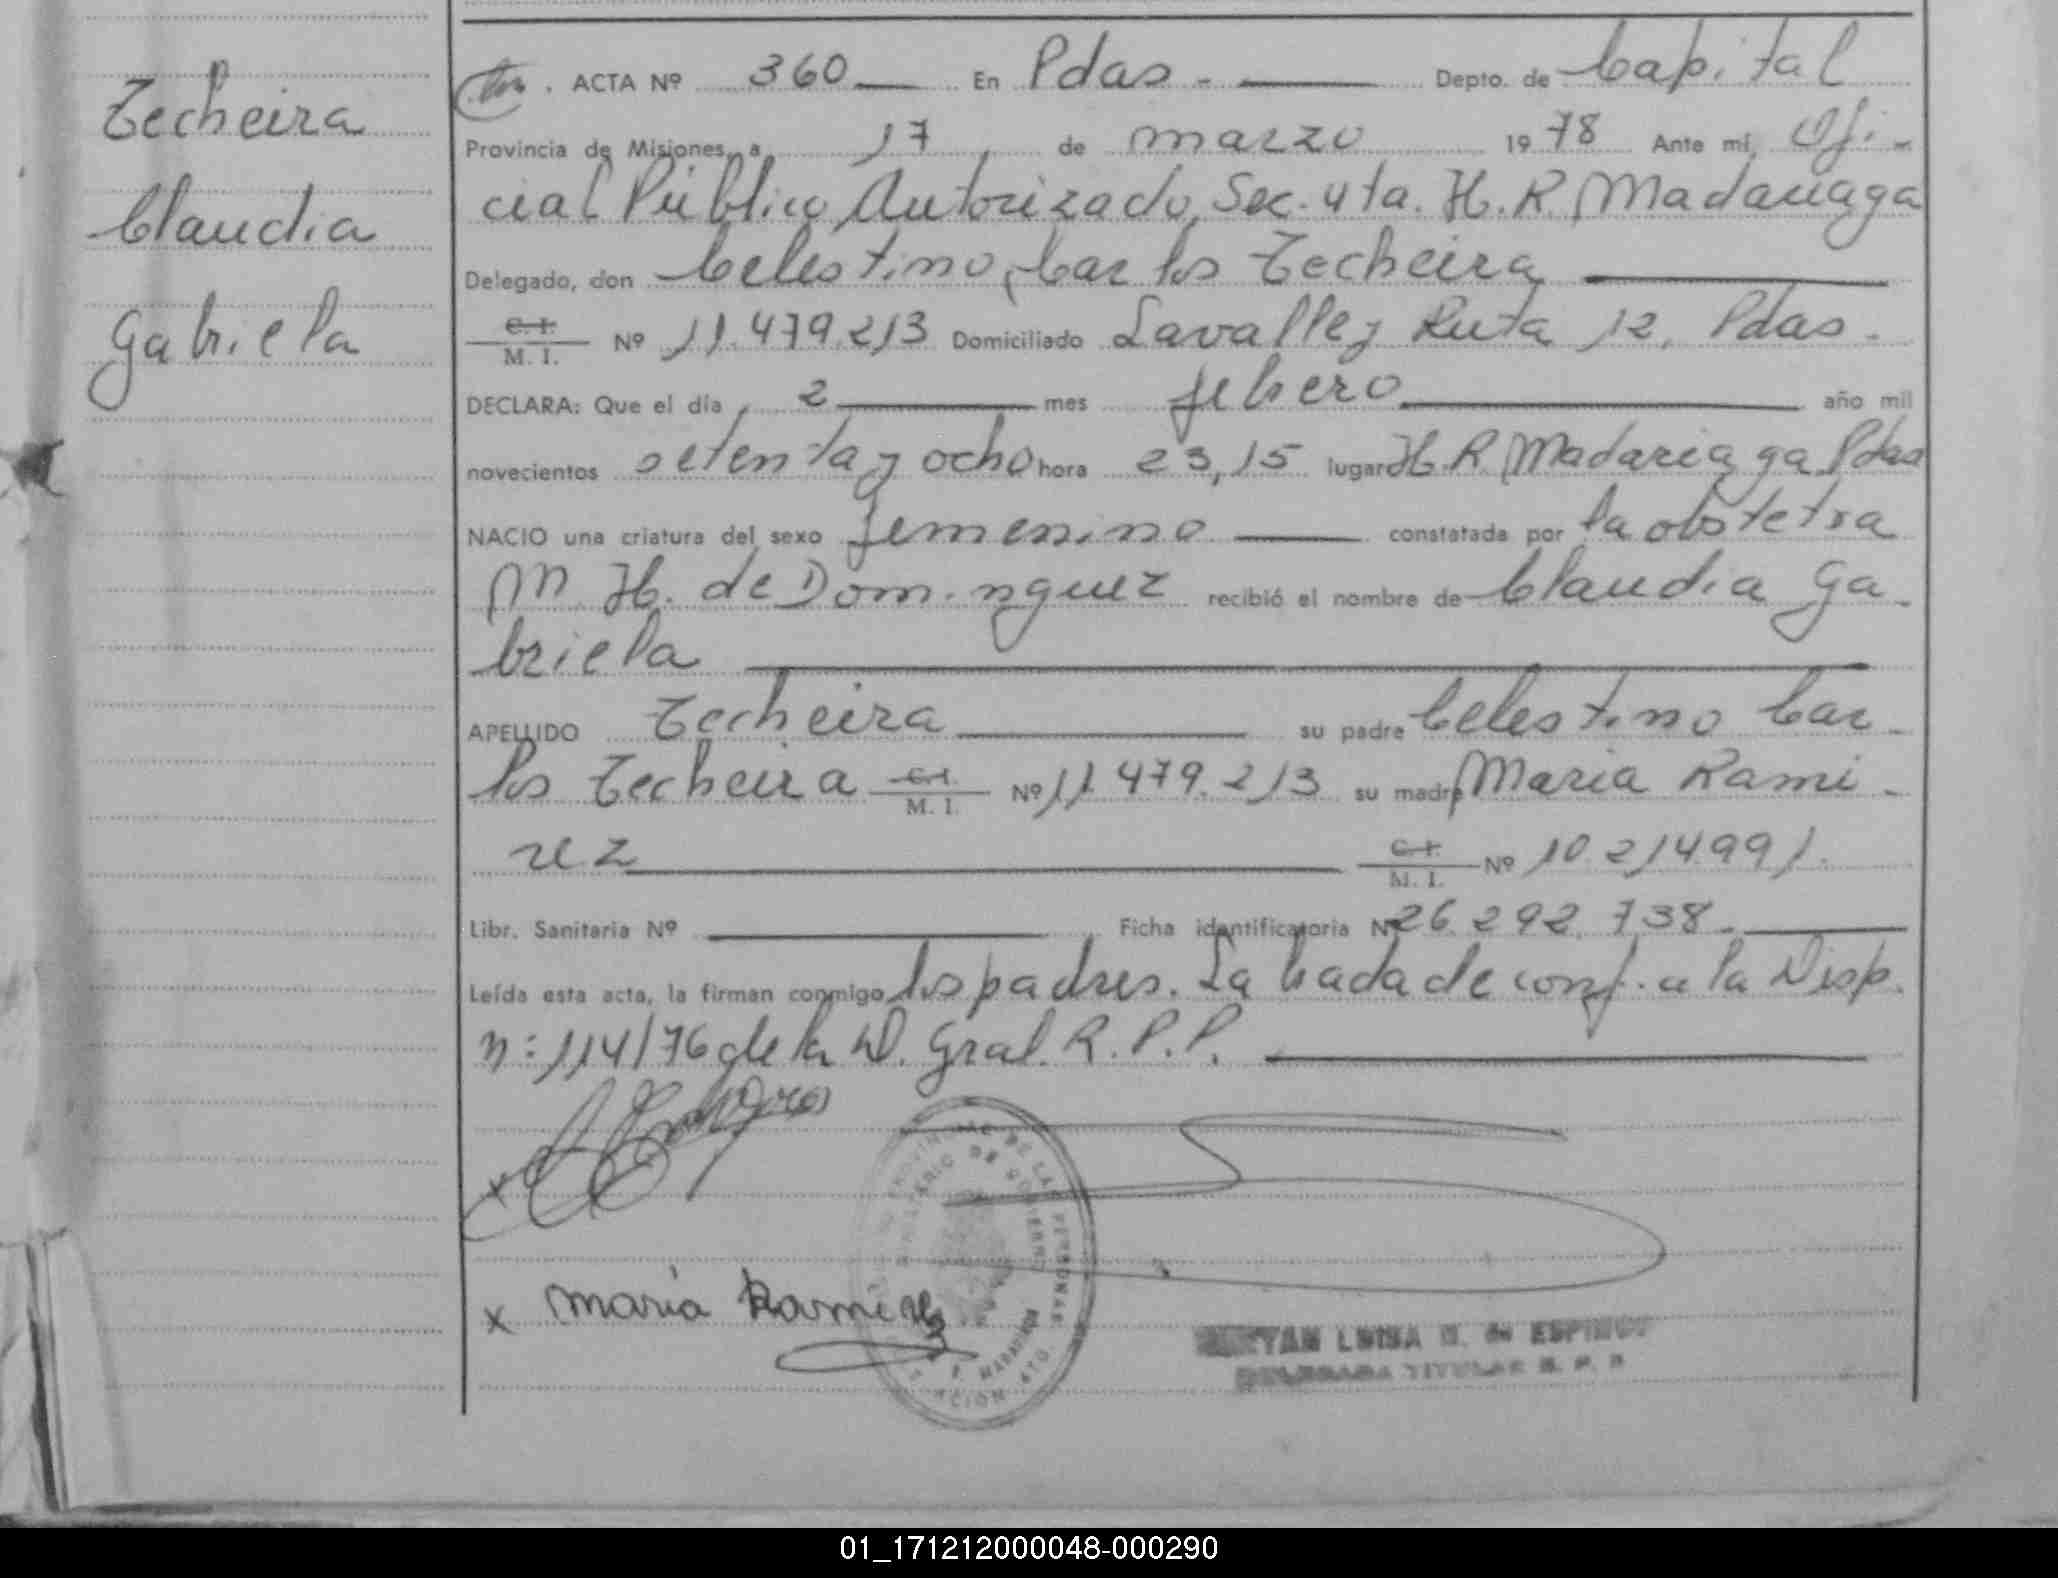 Techeira
Claudia
Gabriela
ACTA Nº 360 En Pdas - Depto. de Capital
Provincia de Misiones, a 17 de marzo 1978 Ante mi, Ofi-
cial Público Autorizado, Sec. 4ta. H. R. Madariaga
Delegado, don Celestino Carlos Techeira
C. I.
M. I. Nº 11.479.213 Domiciliado Lavalle y Ruta 12, Pdas.
DECLARA: Que el día 2 mes febrero año mil
novecientos setenta y ocho hora 23,15 lugar H. R. Madariaga Pdas
NACIO una criatura del sexo femenino constatada por la obstetra
M. H. de Dominguez recibió el nombre de Claudia Ga-
briela
APELLIDO Techeira su padre Celestino Car-
los Techeira C. I. M. I. Nº 11.479.213 su madre Maria Rami-
rez C. I. M. I. Nº 10.214991.
Libr. Sanitaria Nº Ficha identificatoria Nº 26.292.738.-
Leída esta acta, la firman conmigo los padres. Labrada de conf. a la Disp.
n: 114/76 de la D. Gral. R. P. P.
x
x María Ramirez
PROVINCIAL DE LAS PERSONAS
DE GOBIERNO
LUISA de ESPINO
DELEGADA TITULAR R. P. P.
01_171212000048-000290